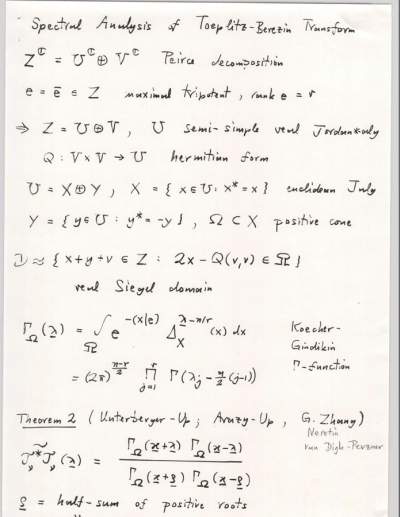 Spectral Analysis of Toeplitz-Berezin Transform
Z^ℂ = U^ℂ ⊕ V^ℂ Peirce decomposition
e = ē ∈ Z maximal tripotent, rank e = r
⇒ Z = U ⊕ V, U semi-simple real Jordan*-alg
Q : V × V → U hermitian form
U = X ⊕ Y, X = { x ∈ U : x* = x } euclidean J-alg
Y = { y ∈ U : y* = -y }, Ω ⊂ X positive cone
D ≈ { x + y + v ∈ Z : 2x - Q(v,v) ∈ Ω }
real Siegel domain
Γ_Ω(λ) = ∫_Ω e^{-(x|e)} Δ_X^{λ-n/r}(x) dx Koecher-
Gindikin
Γ-function
= (2π)^{(n-r)/2} ∏_{j=1}^{r} Γ(λ_j - (j-1))
Theorem 2 (Unterberger-Up; Arazy-Up, G. Zhang)
Neretin
van Dijk-Pevzner
(λ) = Γ_Ω(+λ) Γ_Ω(-λ) / Γ_Ω(+ρ) Γ_Ω(-ρ)
ρ = half-sum of positive roots